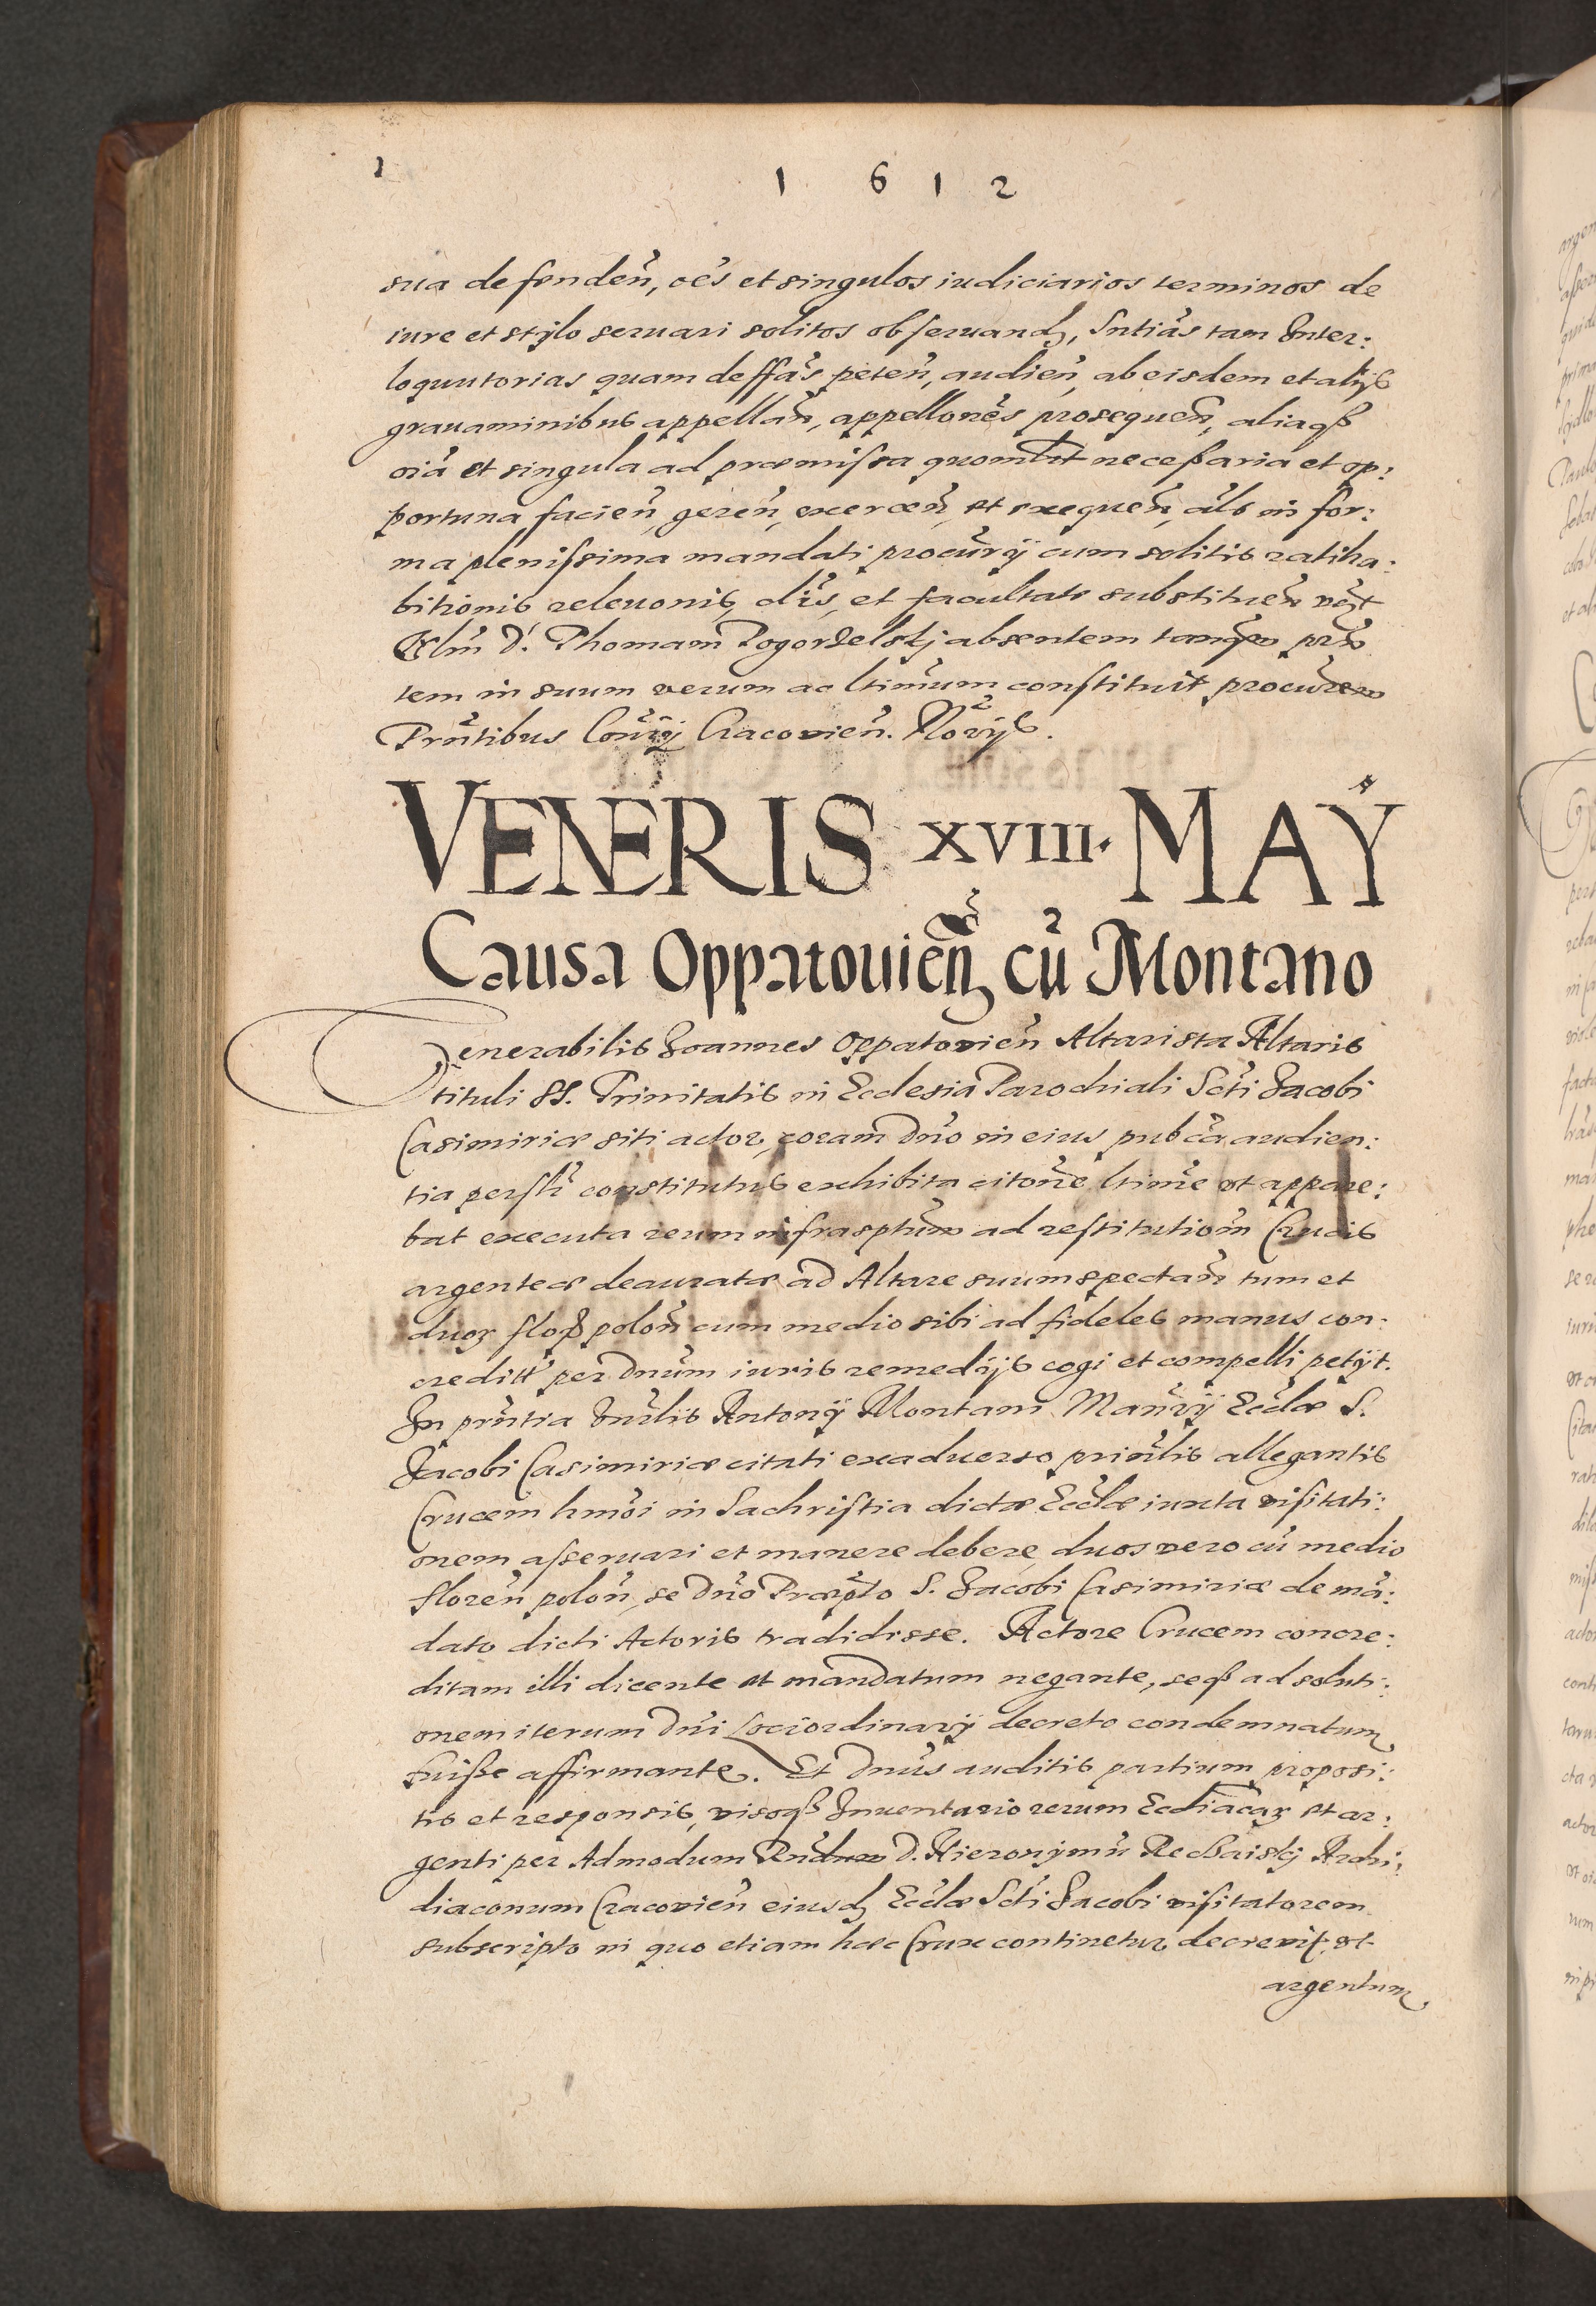 1 6 1 2
sua defenden̄, oe͂s et singulos iudiciarios terminos de
iure et stÿlo seruari solitos obseruand, Sntias tam Inter:
loquutorias quam deffas peten̄, audien̄, ab eisdem et alÿs
grauaminibus appellan̄, appellones prosequen̄, aliaqȝ
oia et singula ad præmissa quomlt necessaria et op:
portuna facien̄, geren̄, exercen̄, et exequen̄, als in for:
ma plenissima mandati procurÿ cum solitis ratiha:
bitionis releuonis, clis, et facultate substituen̄
D. Thomam Pogorzelskj absentem tanqm pñ
tem in suum verum ac ltimum constituit procurem
Prntibus Cracouien̄. Norÿs.
VENERIS XVIII. MAY
Causa Oppatouien̄ cū Montano
Venerabilis Joannes Oppatouien̄ Altarista Altaris
tituli SS. Trinitatis in Ecclesia Parochiali Scti Jacobi
Casimiriæ siti actor, coram Dno in eius publca audien:
tia persltr constitutus exhibita citone ltime ut appare:
bat executa reum infrascptum ad restitutiom Crucis
argenteæ deauratæ ad Altare suum spectan̄ tum et
duorȝ flor polon̄ cum medio sibi ad fideles manus con:
creditt per Dnum iuris remedÿs cogi et compelli petÿt.
In prntia Antonÿ Montani Ecclæ S.
Jacobi Casimiriæ citati ex aduerso prinlis allegantis
Crucem hmoi in Sachristia dictæ Ecclæ iuxta visitati:
onem asseruari et manere debere, duos vero cū medio
floren̄ polon̄, se Dno Præpto S. Jacobi Casimiriæ de mā:
dato dicti Actoris tradidisse. Actore Crucem concre:
ditam illi dicente et mandatum negante, seqȝ ad soluti:
onem iterum Dni Lociordinarÿ decreto condemnatum
fuisse affirmante. Et Dnus auditis partium proposi:
tis et responsis, visoqȝ Inuentario rerum Eccliacarȝ et ar:
genti per Admodum Rndum D. Hieronymū Archi:
diaconum Cracouien̄ eiusd Ecclæ Scti Jacobi visitatorem
subscripto in quo etiam hæc Crux continetur decreuit, ut
argentum